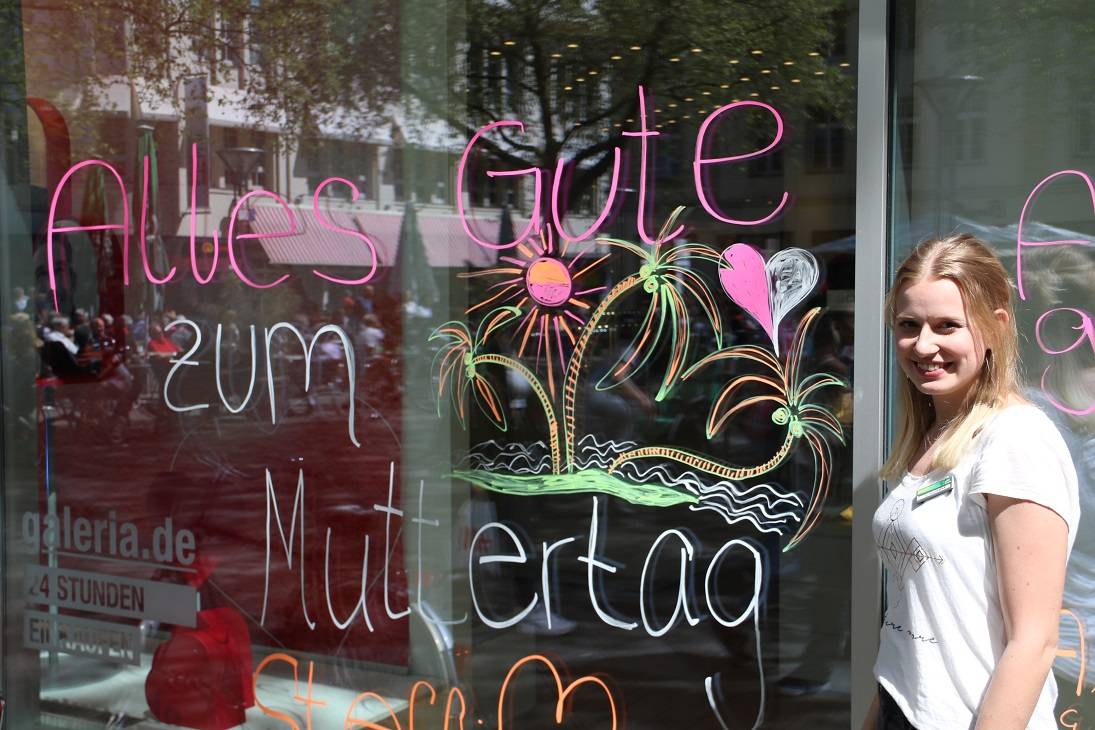 Alles Gute
zum
Muttertag
galeria.de
24 STUNDEN
EINKAUFEN